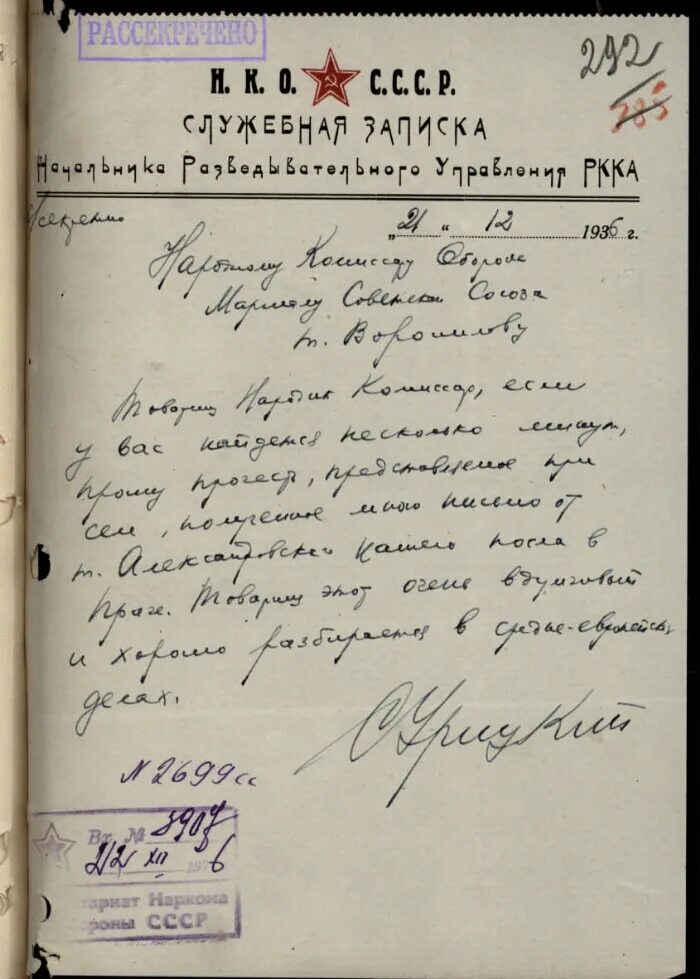 РАССЕКРЕЧЕНО
292
385
Н. К. О. С.С.С.Р.
СЛУЖЕБНАЯ ЗАПИСКА
Начальника Разведывательного Управления РККА
„21“ 12 1936 г.
Народному Комиссару Обороны
Маршалу Советского Союза
т. Ворошилову
Товарищ Народный Комиссар, если
у вас найдется несколько минут,
прошу прочесть, представляемое при
сем, полученное мною письмо от
т. Александровского нашего посла в
Праге. Товарищ этот очень вдумчивый
и хорошо разбирается в средне-европейских
делах.
С Урицкий
N 2699сс
Вх. № 3907
22 XII 1936
тариат Наркома
роны СССР